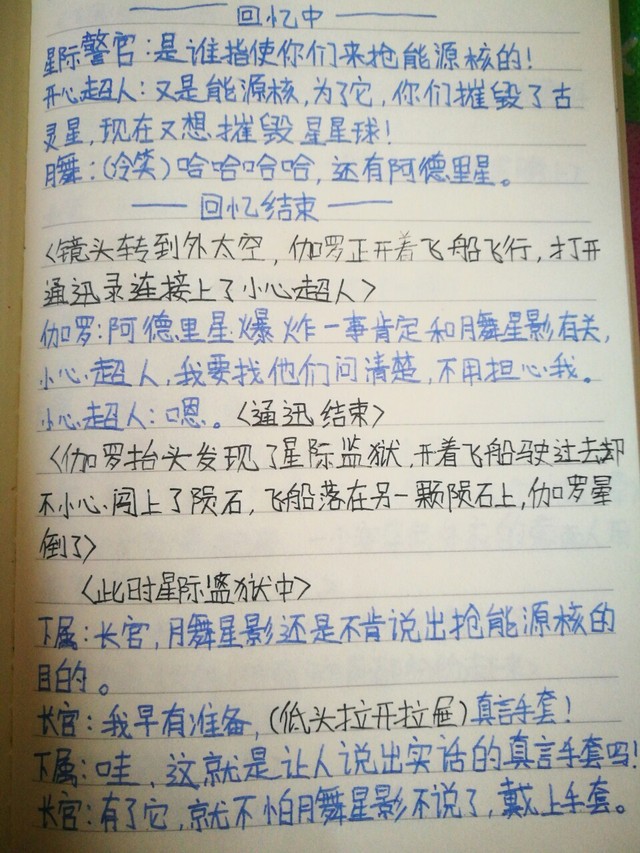 —— 回忆中 ——
星际警官：是谁指使你们来抢能源核的！
开心超人：又是能源核，为了它，你们摧毁了古
灵星，现在又想摧毁星星球！
月舞：（冷笑）哈哈哈哈，还有阿德里星。
—— 回忆结束 ——
〈镜头转到外太空，伽罗正开着飞船飞行，打开
通讯录连接上了小心超人〉
伽罗：阿德里星爆炸一事肯定和月舞星影有关，
小心超人，我要找他们问清楚，不用担心我。
小心超人：嗯。〈通讯结束〉
〈伽罗抬头发现了星际监狱，开着飞船驶过去却
不小心闯上了陨石，飞船落在另一颗陨石上，伽罗晕
倒了〉
〈此时星际监狱中〉
下属：长官，月舞星影还是不肯说出抢能源核的
目的。
长官：我早有准备，（低头拉开拉屉）真言手套！
下属：哇，这就是让人说出实话的真言手套吗！
长官：有了它，就不怕月舞星影不说了，戴上手套。